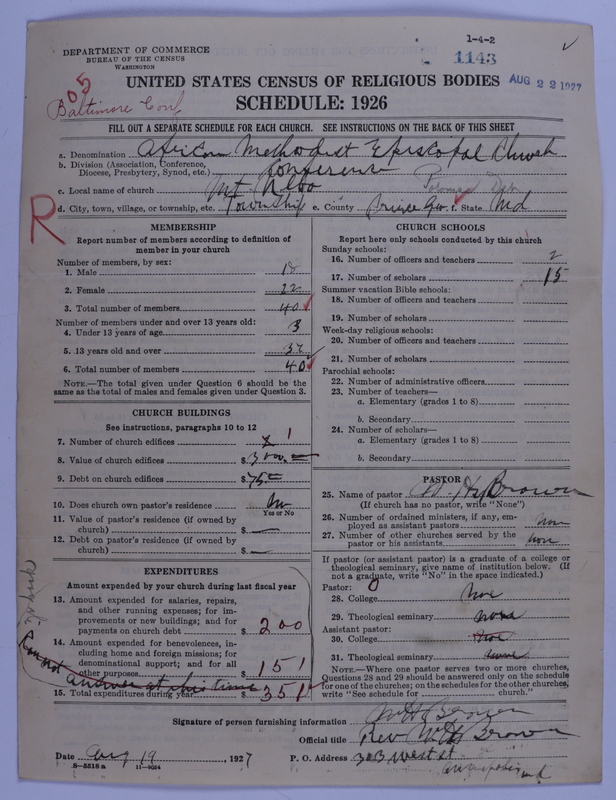 1-4-2
DEPARTMENT OF COMMERCE
BUREAU OF THE CENSUS
WASHINGTON
1143
AUG 22 1927
05
Baltimore Conf
UNITED STATES CENSUS OF RELIGIOUS BODIES
SCHEDULE: 1926
FILL OUT A SEPARATE SCHEDULE FOR EACH CHURCH. SEE INSTRUCTIONS ON THE BACK OF THIS SHEET
a. Denomination African Methodist Episcopal Church
b. Division (Association, Conference, Diocese, Presbytery, Synod, etc.) Conference
c. Local name of church Mt Nebo Potomac Dis
d. City, town, village, or township, etc. Township e. County Prince Geo f. State Md
R
MEMBERSHIP
Report number of members according to definition of member in your church
Number of members, by sex:
1. Male 18
2. Female 22
3. Total number of members 40
Number of members under and over 13 years old:
4. Under 13 years of age 3
5. 13 years old and over 37
6. Total number of members 40
NOTE.—The total given under Question 6 should be the same as the total of males and females given under Question 3.
CHURCH BUILDINGS
See instructions, paragraphs 10 to 12
7. Number of church edifices 1
8. Value of church edifices $ 3000.
9. Debt on church edifices $ 75
10. Does church own pastor's residence No
Yes or No
11. Value of pastor's residence (if owned by church) $ —
12. Debt on pastor's residence (if owned by church) $ —
EXPENDITURES
Amount expended by your church during last fiscal year
13. Amount expended for salaries, repairs, and other running expenses; for improvements or new buildings; and for payments on church debt $ 200
14. Amount expended for benevolences, including home and foreign missions; for denominational support; and for all other purposes $ 151
Cannot answer at this time
15. Total expenditures during year $ 351
CHURCH SCHOOLS
Report here only schools conducted by this church
Sunday schools:
16. Number of officers and teachers 2
17. Number of scholars 15
Summer vacation Bible schools:
18. Number of officers and teachers
19. Number of scholars
Week-day religious schools:
20. Number of officers and teachers
21. Number of scholars
Parochial schools:
22. Number of administrative officers
23. Number of teachers—
a. Elementary (grades 1 to 8)
b. Secondary
24. Number of scholars—
a. Elementary (grades 1 to 8)
b. Secondary
PASTOR
25. Name of pastor W. H. Brown
(If church has no pastor, write "None")
26. Number of ordained ministers, if any, employed as assistant pastors non
27. Number of other churches served by the pastor or his assistants non
If pastor (or assistant pastor) is a graduate of a college or theological seminary, give name of institution below. (If not a graduate, write "No" in the space indicated.)
Pastor: O
28. College
29. Theological seminary
Assistant pastor:
30. College
31. Theological seminary
NOTE.—Where one pastor serves two or more churches, Questions 28 and 29 should be answered only on the schedule for one of the churches; on the schedules for the other churches, write "See schedule for church."
Signature of person furnishing information W H Brown
Official title Rev W H Brown
Date Aug 19, 1927 P. O. Address 303 West st
Annapolis md
8-5518 a 11-9084